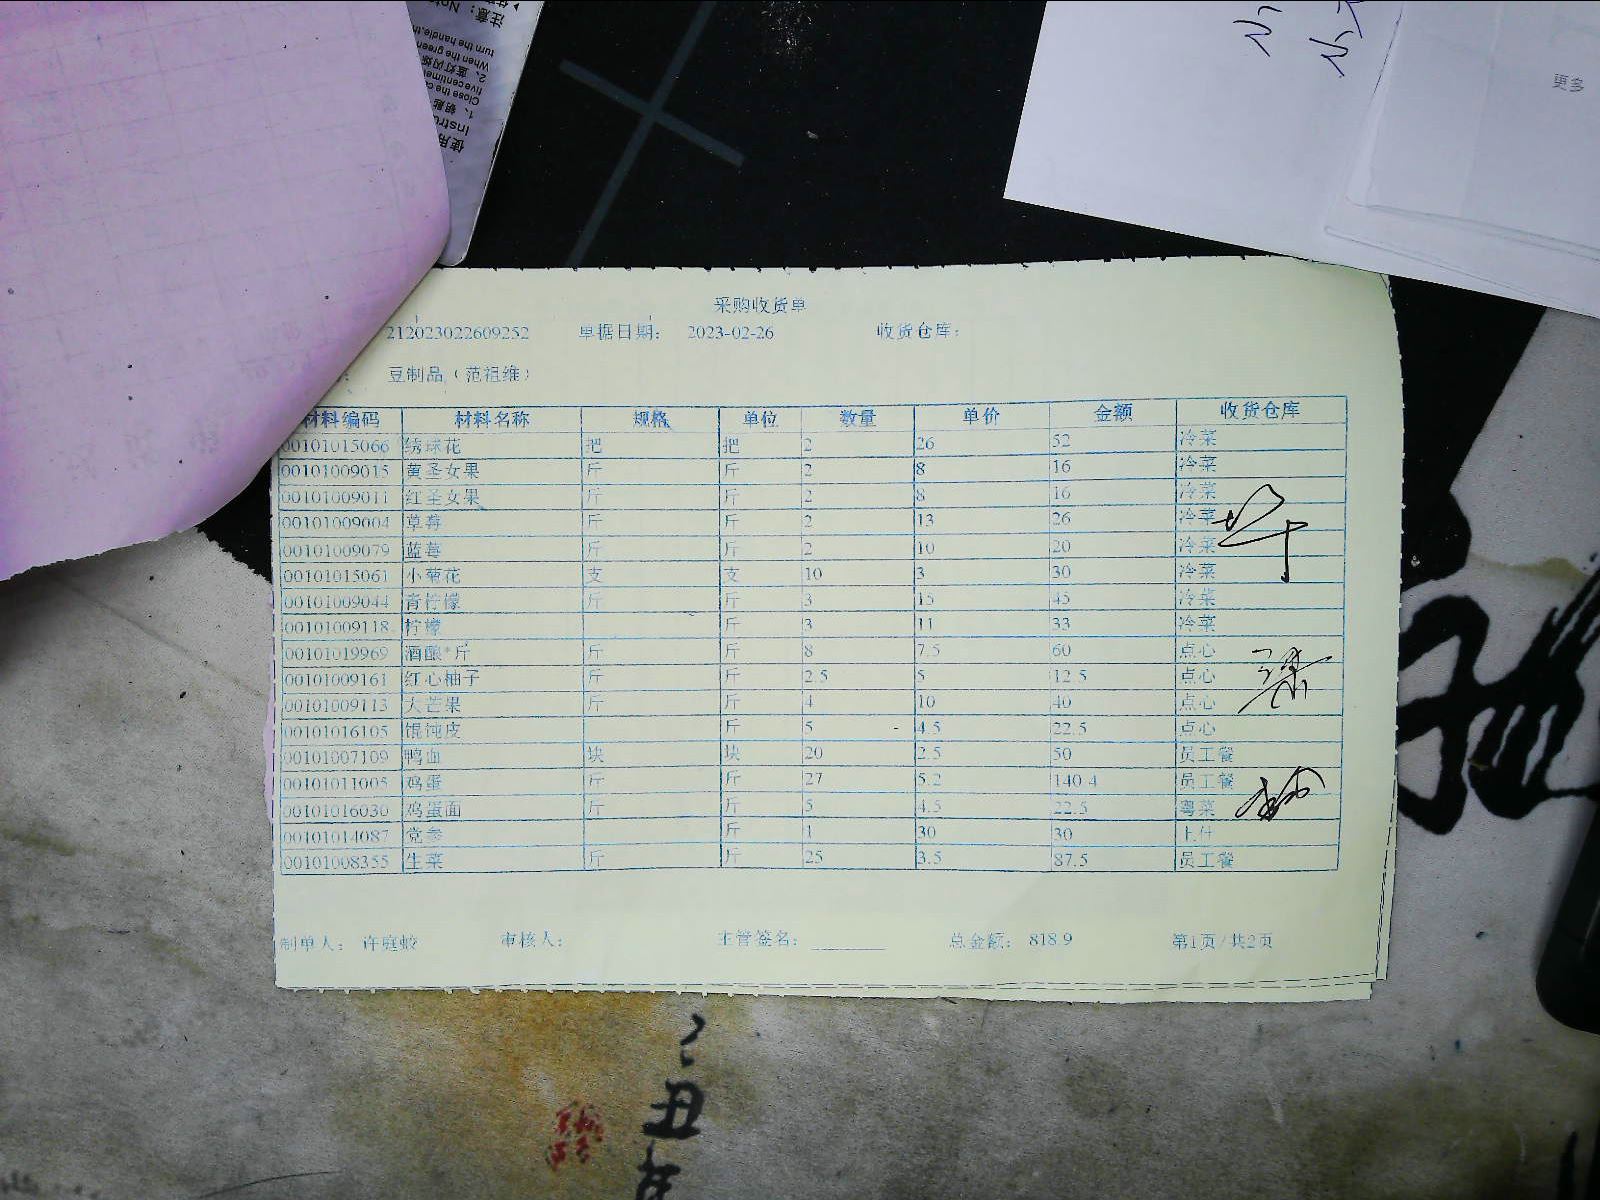 注意：Note
turn the handle.th
When the green
2、蓝灯闪烁
five centimet
Close the c
1、钥匙
Instru
使用
更多
采购收货单
212023022609252 单据日期： 2023-02-26 收货仓库：
豆制品（范祖维）
材料编码 材料名称 规格 单位 数量 单价 金额 收货仓库
00101015066 绣球花 把 把 2 26 52 冷菜
00101009015 黄圣女果 斤 斤 2 8 16 冷菜
00101009011 红圣女果 斤 斤 2 8 16 冷菜
00101009004 草莓 斤 斤 2 13 26 冷菜
00101009079 蓝莓 斤 斤 2 10 20 冷菜
00101015061 小菊花 支 支 10 3 30 冷菜
00101009044 青柠檬 斤 斤 3 15 45 冷菜
00101009118 柠檬 斤 3 11 33 冷菜
00101019969 酒酿*斤 斤 斤 8 7.5 60 点心
00101009161 红心柚子 斤 斤 2.5 5 12.5 点心
00101009113 大芒果 斤 斤 4 10 40 点心
00101016105 馄饨皮 斤 5 4.5 22.5 点心
00101007109 鸭血 块 块 20 2.5 50 员工餐
00101011005 鸡蛋 斤 斤 27 5.2 140.4 员工餐
00101016030 鸡蛋面 斤 斤 5 4.5 22.5 粤菜
00101014087 党参 斤 1 30 30 上什
00101008355 生菜 斤 斤 25 3.5 87.5 员工餐
制单人： 许庭蛟 审核人： 主管签名： 总金额： 818.9 第1页/共2页
丑